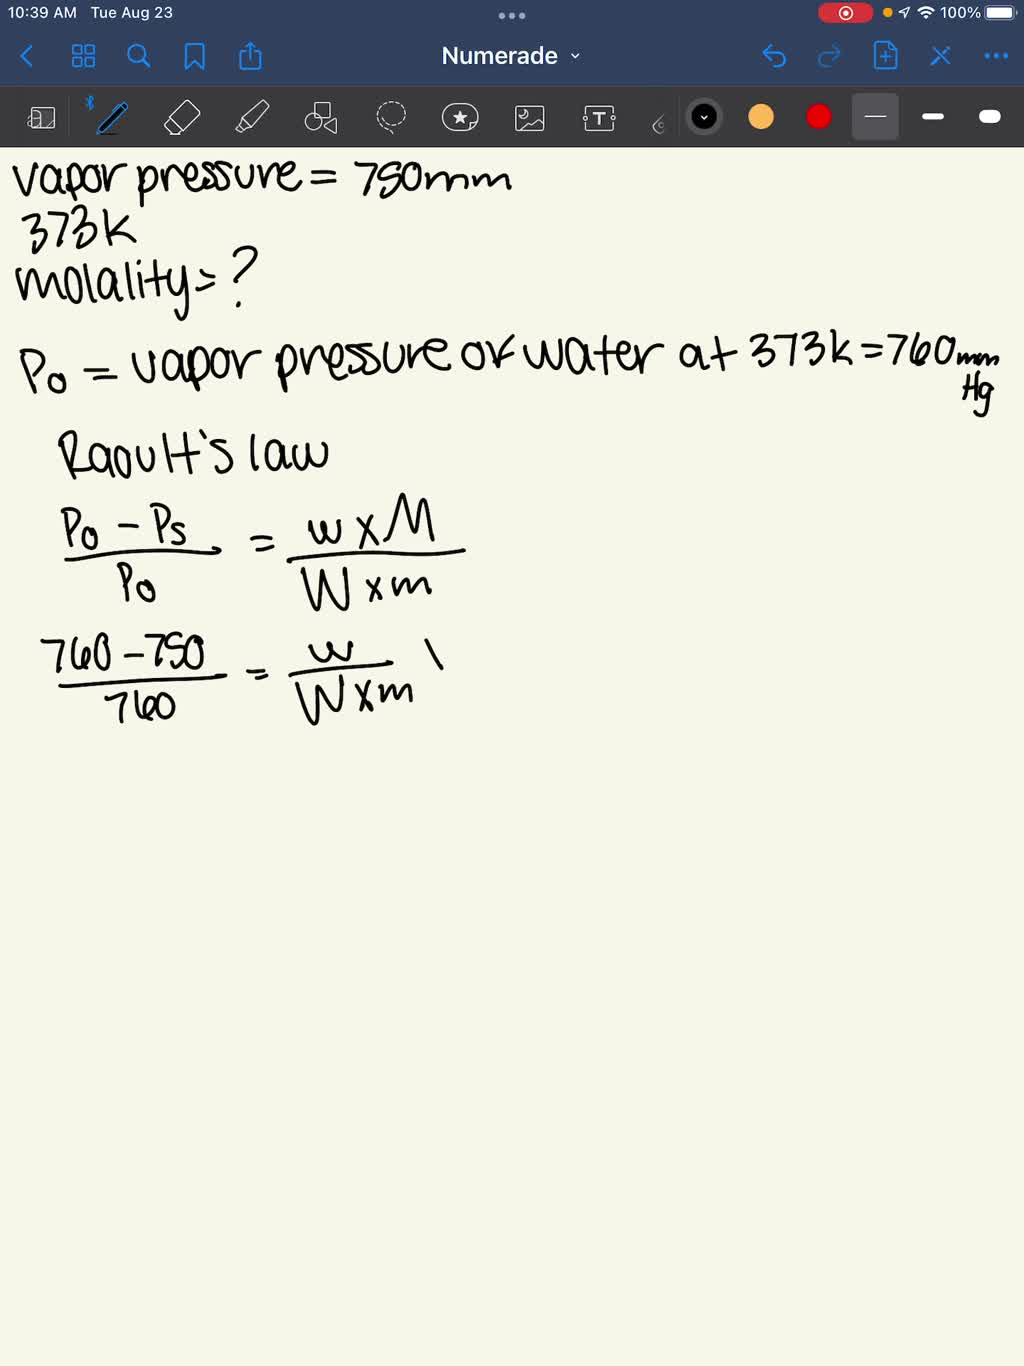 10:39 AM Tue Aug 23 100%
Numerade
T
vapor pressure = 750mm
373K
molality = ?
Po = vapor pressure of water at 373k = 760mm Hg
Raoult's law
Po - Ps / Po = w x M / W x m
760 - 750 / 760 = w / W x m \